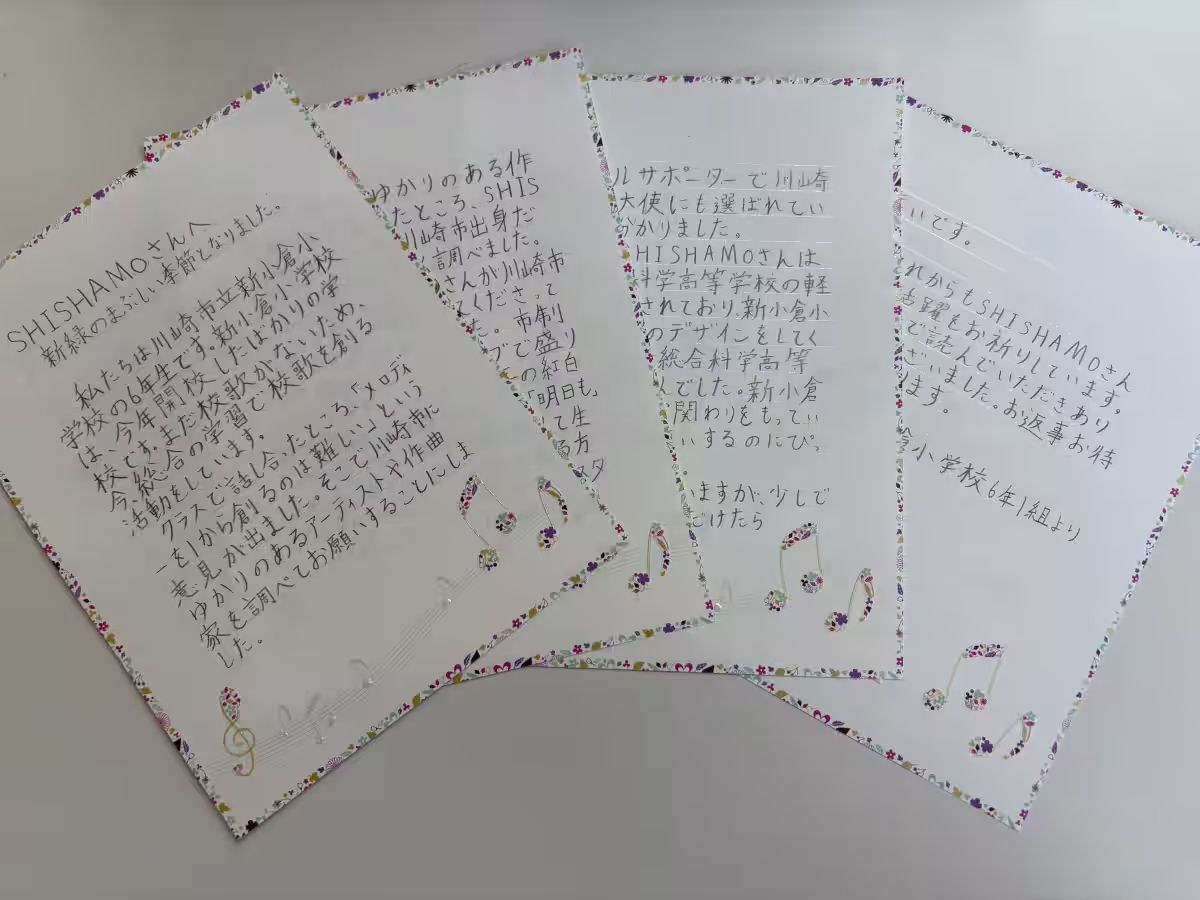 SHISHAMOさんへ
新緑のまぶしい季節となりました。
私たちは川崎市立新小倉小
学校の6年生です。新小倉小学校
は、今年開校したばかりの学
校です。まだ校歌がないため、
今、総合の学習で校歌を創る
活動をしています。
クラスで話し合ったところ、「メロディ
ーを1から創るのは難しい」という
意見が出ました。そこで川崎市に
ゆかりのあるアーティストや作曲
家を調べてお願いすることにしま
した。
ゆかりのある作
たところ、SHIS
川崎市出身だ
調べました。
さんが川崎市
てくださって
た。市制
ブで盛り
の紅白
「明日も」
て生
方
ルサポーターで川崎
大使にも選ばれてい
分かりました。
HISHAMOさんは
科学高等学校の軽
されており、新小倉小
のデザインをしてく
総合科学高等
でした。新小倉
関わりをもってい
いするのにぴっ
いますが、少しで
だけたら
いです。
れからもSHISHAMOさん
活躍をお祈りしています。
で読んでいただきあり
ざいました。お返事お待
ります。
倉小学校6年1組より